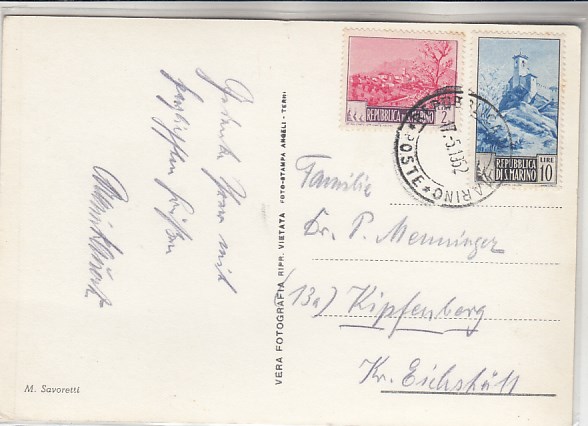 Gedenke Ihrer mit
herzlichsten Grüßen
M. Savoretti
VERA FOTOGRAFIA RIPR. VIETATA FOTO-STAMPA ANGELI - TERNI
REPUBBLICA
DI S. MARINO
2
REPUBBLICA
DI S. MARINO
LIRE
10
POSTE
17.5.1952
Familie
Dr. P. Menninger
(13a) Kipfenberg
Kr. Eichstätt